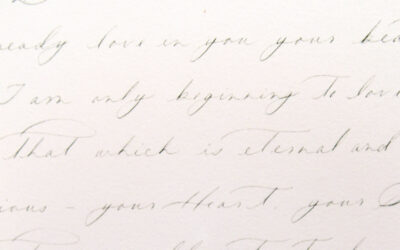 ready love in you your bea
I am only beginning to lov
that which is eternal and
ious - your Heart. your S